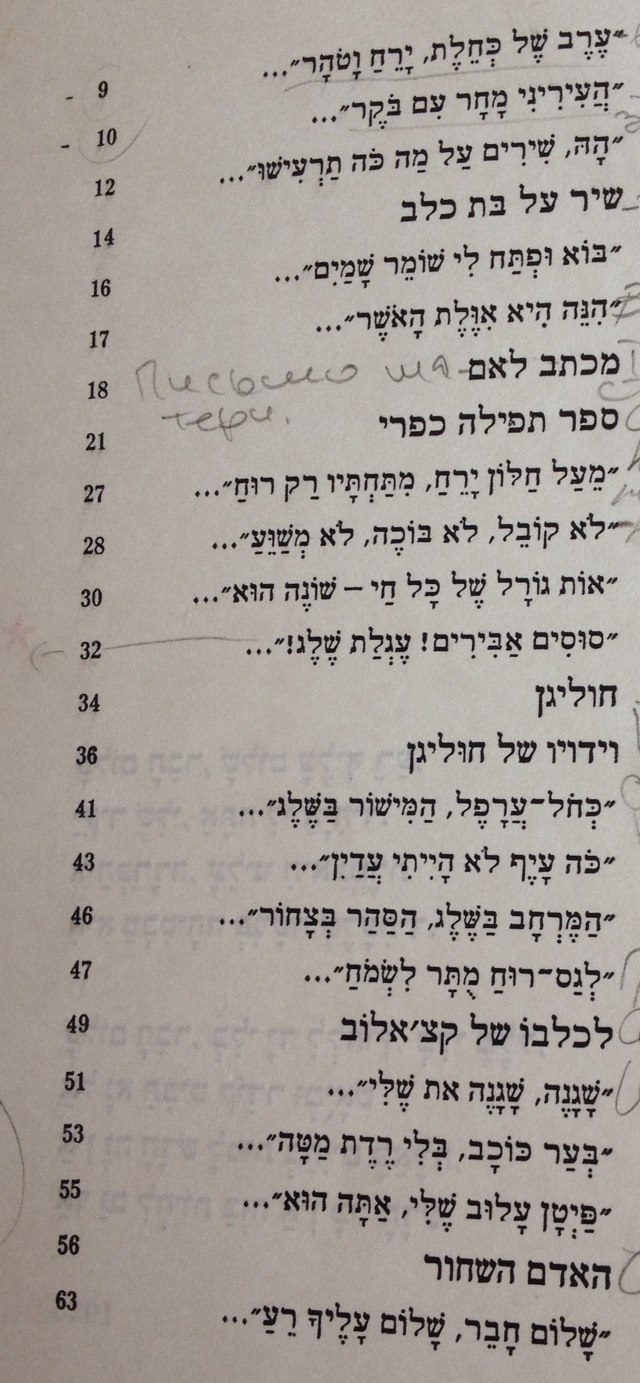 ״עֶרֶב שֶׁל כְּחֵלֶת, יָרֵחַ וָטֹהָר״... 9
״הֲעִירִינִי מָחָר עִם בֹּקֶר״... 10
״הָהּ, שִׁירִים עַל מַה כֹּה תַרְעִישׁוּ״... 12
שיר על בת כלב 14
״בּוֹא וּפְתַּח לִי שׁוֹמֵר שָׁמַיִם״... 16
״הִנֵּה הִיא אִוֶּלֶת הָאֹשֶׁר״... 17
מכתב לאם 18
Письмо ма-
тери.
ספר תפילה כפרי 21
״מֵעַל חַלּוֹן יָרֵחַ, מִתַּחְתָּיו רַק רוּחַ״... 27
״לֹא קוֹבֵל, לֹא בּוֹכֶה, לֹא מְשַׁוֵּעַ״... 28
״אוֹת גּוֹרָל שֶׁל כָּל חַי – שׁוֹנֶה הוּא״... 30
״סוּסִים אַבִּירִים! עֶגְלַת שֶׁלֶג!״... 32
חוליגן 34
וידויו של חוליגן 36
״כְּחֹל־עֲרָפֶל, הַמִּישׁוֹר בַּשֶּׁלֶג״... 41
״כֹּה עָיֵף לֹא הָיִיתִי עֲדַיִן״... 43
״הַמֶּרְחָב בַּשֶּׁלֶג, הַסַּהַר בְּצָחוֹר״... 46
״לְגַס־רוּחַ מֻתָּר לִשְׂמֹחַ״... 47
לכלבו של קצ׳אלוב 49
״שָׁגָנֶה, שָׁגָנֶה אַת שֶׁלִּי״... 51
״בְּעַר כּוֹכָב, בְּלִי רֶדֶת מַטָּה״... 53
״פַּיְטָן עָלוּב שֶׁלִּי, אַתָּה הוּא״... 55
האדם השחור 56
״שָׁלוֹם חָבֵר, שָׁלוֹם עָלֶיךָ רֵעַ״... 63